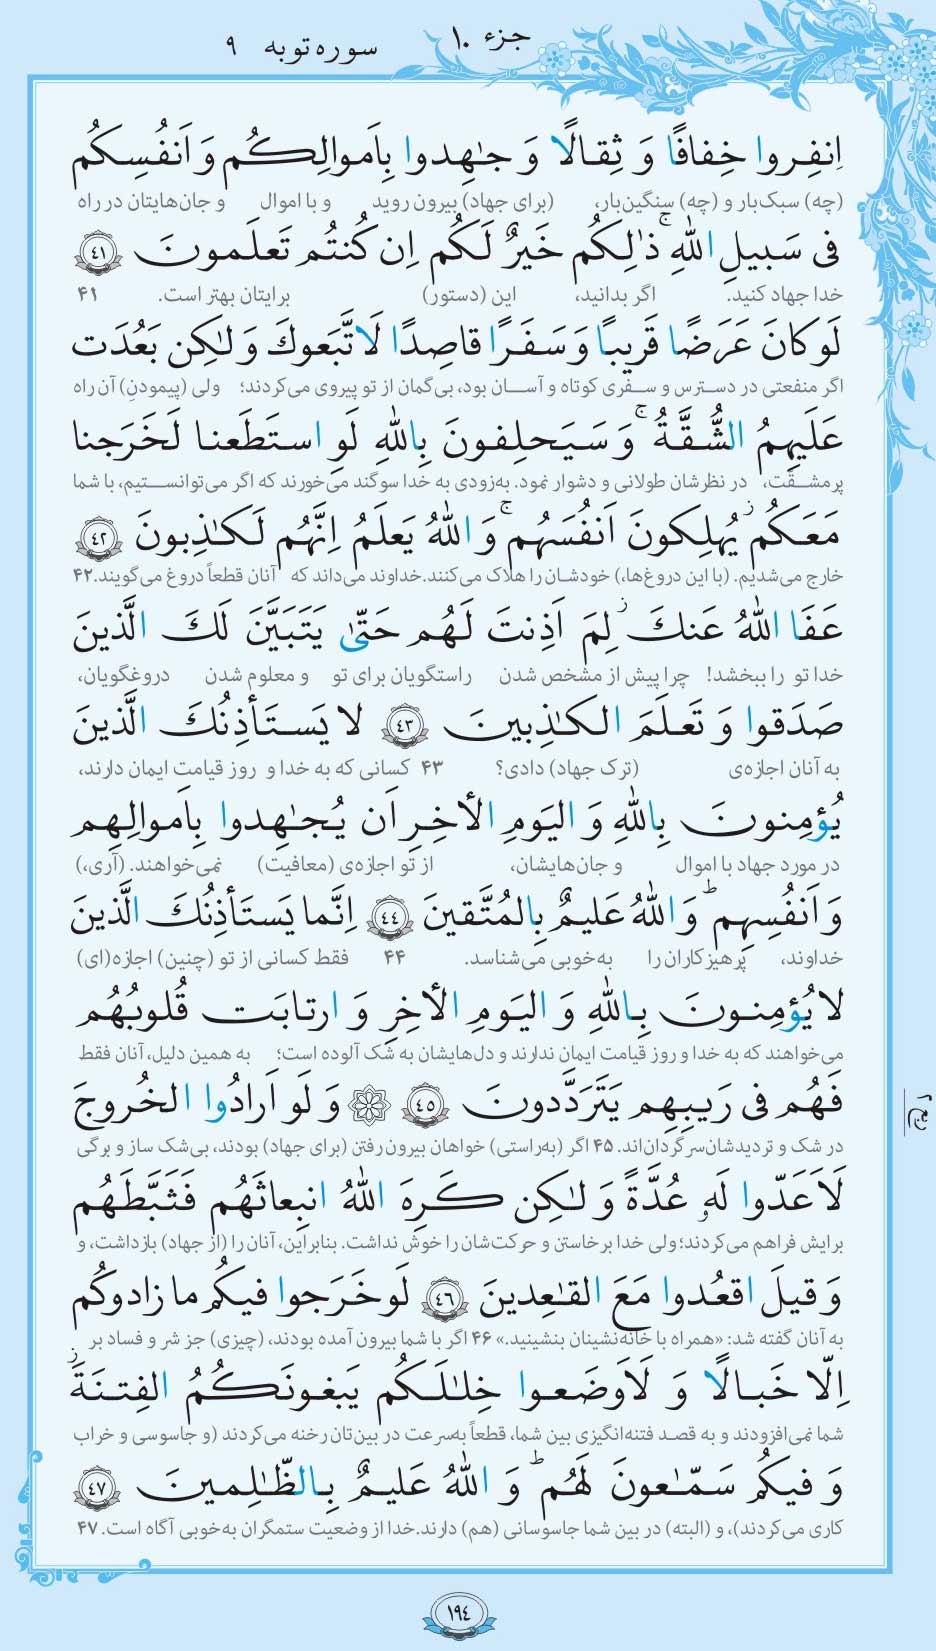 جزء ۱۰
سوره توبه ۹
اِنفِروا خِفافًا وَ ثِقالًا وَ جٰهِدوا بِاَموالِكُم وَ اَنفُسِكُم
(چه) سبک‌بار و (چه) سنگین‌بار، (برای جهاد) بیرون روید و با اموال و جان‌هایتان در راه
فی سَبیلِ اللهِ ۚ ذٰلِكُم خَیرٌ لَكُم اِن كُنتُم تَعلَمونَ ﴿۴۱﴾
خدا جهاد کنید. اگر بدانید، این (دستور) برایتان بهتر است. ۴۱
لَو كانَ عَرَضًا قَریبًا وَ سَفَرًا قاصِدًا لَاتَّبَعوكَ وَ لٰكِن بَعُدَت
اگر منفعتی در دسترس و سفری کوتاه و آسان بود، بی‌گمان از تو پیروی می‌کردند؛ ولی (پیمودنِ) آن راه
عَلَیهِمُ الشُّقَّةُ ۚ وَ سَیَحلِفونَ بِاللهِ لَوِ استَطَعنا لَخَرَجنا
پرمشقّت، در نظرشان طولانی و دشوار نمود. به‌زودی به خدا سوگند می‌خورند که اگر می‌توانستیم، با شما
مَعَكُم یُهلِكونَ اَنفُسَهُم ۚ وَ اللهُ یَعلَمُ اِنَّهُم لَكٰذِبونَ ﴿۴۲﴾
خارج می‌شدیم. (با این دروغ‌ها،) خودشان را هلاک می‌کنند. خداوند می‌داند که آنان قطعاً دروغ می‌گویند. ۴۲
عَفَا اللهُ عَنكَ لِمَ اَذِنتَ لَهُم حَتّیٰ یَتَبَیَّنَ لَكَ الَّذینَ
خدا تو را ببخشد! چرا پیش از مشخص شدن راستگویان برای تو و معلوم شدن دروغگویان،
صَدَقوا وَ تَعلَمَ الكٰذِبینَ ﴿۴۳﴾ لا یَستَأذِنُكَ الَّذینَ
به آنان اجازه‌ی (ترک جهاد) دادی؟ ۴۳ کسانی که به خدا و روز قیامت ایمان دارند،
یُؤمِنونَ بِاللهِ وَ الیَومِ الأخِرِ اَن یُجٰهِدوا بِاَموالِهِم
در مورد جهاد با اموال و جان‌هایشان، از تو اجازه‌ی (معافیت) نمی‌خواهند. (آری،)
وَ اَنفُسِهِم ؕ وَ اللهُ عَلیمٌ بِالمُتَّقینَ ﴿۴۴﴾ اِنَّما یَستَأذِنُكَ الَّذینَ
خداوند، پرهیزکاران را به‌خوبی می‌شناسد. ۴۴ فقط کسانی از تو (چنین) اجازه(ای)
لا یُؤمِنونَ بِاللهِ وَ الیَومِ الأخِرِ وَ ارتابَت قُلوبُهُم
می‌خواهند که به خدا و روز قیامت ایمان ندارند و دل‌هایشان به شک آلوده است؛ به همین دلیل، آنان فقط
فَهُم فی رَیبِهِم یَتَرَدَّدونَ ﴿۴۵﴾ وَ لَو اَرادُوا الخُروجَ
در شک و تردیدشان سرگردان‌اند. ۴۵ اگر (به‌راستی) خواهان بیرون رفتن (برای جهاد) بودند، بی‌شک ساز و برگی
لَاَعَدّوا لَهٗ عُدَّةً وَ لٰكِن كَرِهَ اللهُ انبِعاثَهُم فَثَبَّطَهُم
برایش فراهم می‌کردند؛ ولی خدا برخاستن و حرکت‌شان را خوش نداشت. بنابراین، آنان را (از جهاد) بازداشت، و
وَ قیلَ اقعُدوا مَعَ القٰعِدینَ ﴿۴۶﴾ لَو خَرَجوا فیكُم ما زادوكُم
به آنان گفته شد: «همراه با خانه‌نشینان بنشینید.» ۴۶ اگر با شما بیرون آمده بودند، (چیزی) جز شر و فساد بر
اِلّا خَبالًا وَ لَاَوضَعوا خِلٰلَكُم یَبغونَكُمُ الفِتنَةَ
شما نمی‌افزودند و به قصد فتنه‌انگیزی بین شما، قطعاً به‌سرعت در بین‌تان رخنه می‌کردند (و جاسوسی و خراب
وَ فیكُم سَمّٰعونَ لَهُم ؕ وَ اللهُ عَلیمٌ بِالظّٰلِمینَ ﴿۴۷﴾
کاری می‌کردند)، و (البته) در بین شما جاسوسانی (هم) دارند. خدا از وضعیت ستمگران به‌خوبی آگاه است. ۴۷
۱۹۴